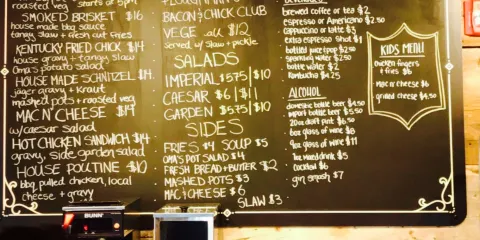 roasted veg
starts at 5pm
SMOKED BRISKET $16
house made bbq sauce
tangy slaw + fresh cut fries
KENTUCKY FRIED CHICK $14
house gravy + tangy slaw
Oma's potato salad
HOUSE MADE SCHNITZEL $14
jäger gravy + kraut
mashed pots + roasted veg
MAC N' CHEESE $14
w/caesar salad
HOT CHICKEN SANDWICH $14
gravy, side garden salad
HOUSE POUTINE $10
bbq pulled chicken, local
cheese + gravy
BACON & CHICK CLUB
VEGE all $12
served w/ slaw + pickle
SALADS
IMPERIAL $5.75 | $10
CAESAR $6 | $11
GARDEN $5.75 | $10
SIDES
FRIES $4 SOUP $5
OMA'S POT SALAD $4
FRESH BREAD + BUTTER $2
MASHED POTS $3
MAC & CHEESE $6
SLAW $3
brewed coffee or tea $2
espresso or Americano $2.50
cappuccino or latte $3
extra espresso shot $1
bottled juice/pop $2.50
sparkling water $2.50
bottle water $2
Kombucha $4.25
ALCOHOL
domestic bottle beer $4.50
import bottle beer $5.50
20oz draft pint $6.50
6oz glass of wine $8
9oz glass of wine $11
1oz mixed drink $5
cocktail $6
gin smash $7
KIDS MENU
chicken fingers
+ fries $6
mac n' cheese $6
grilled cheese $4.50
BUNN